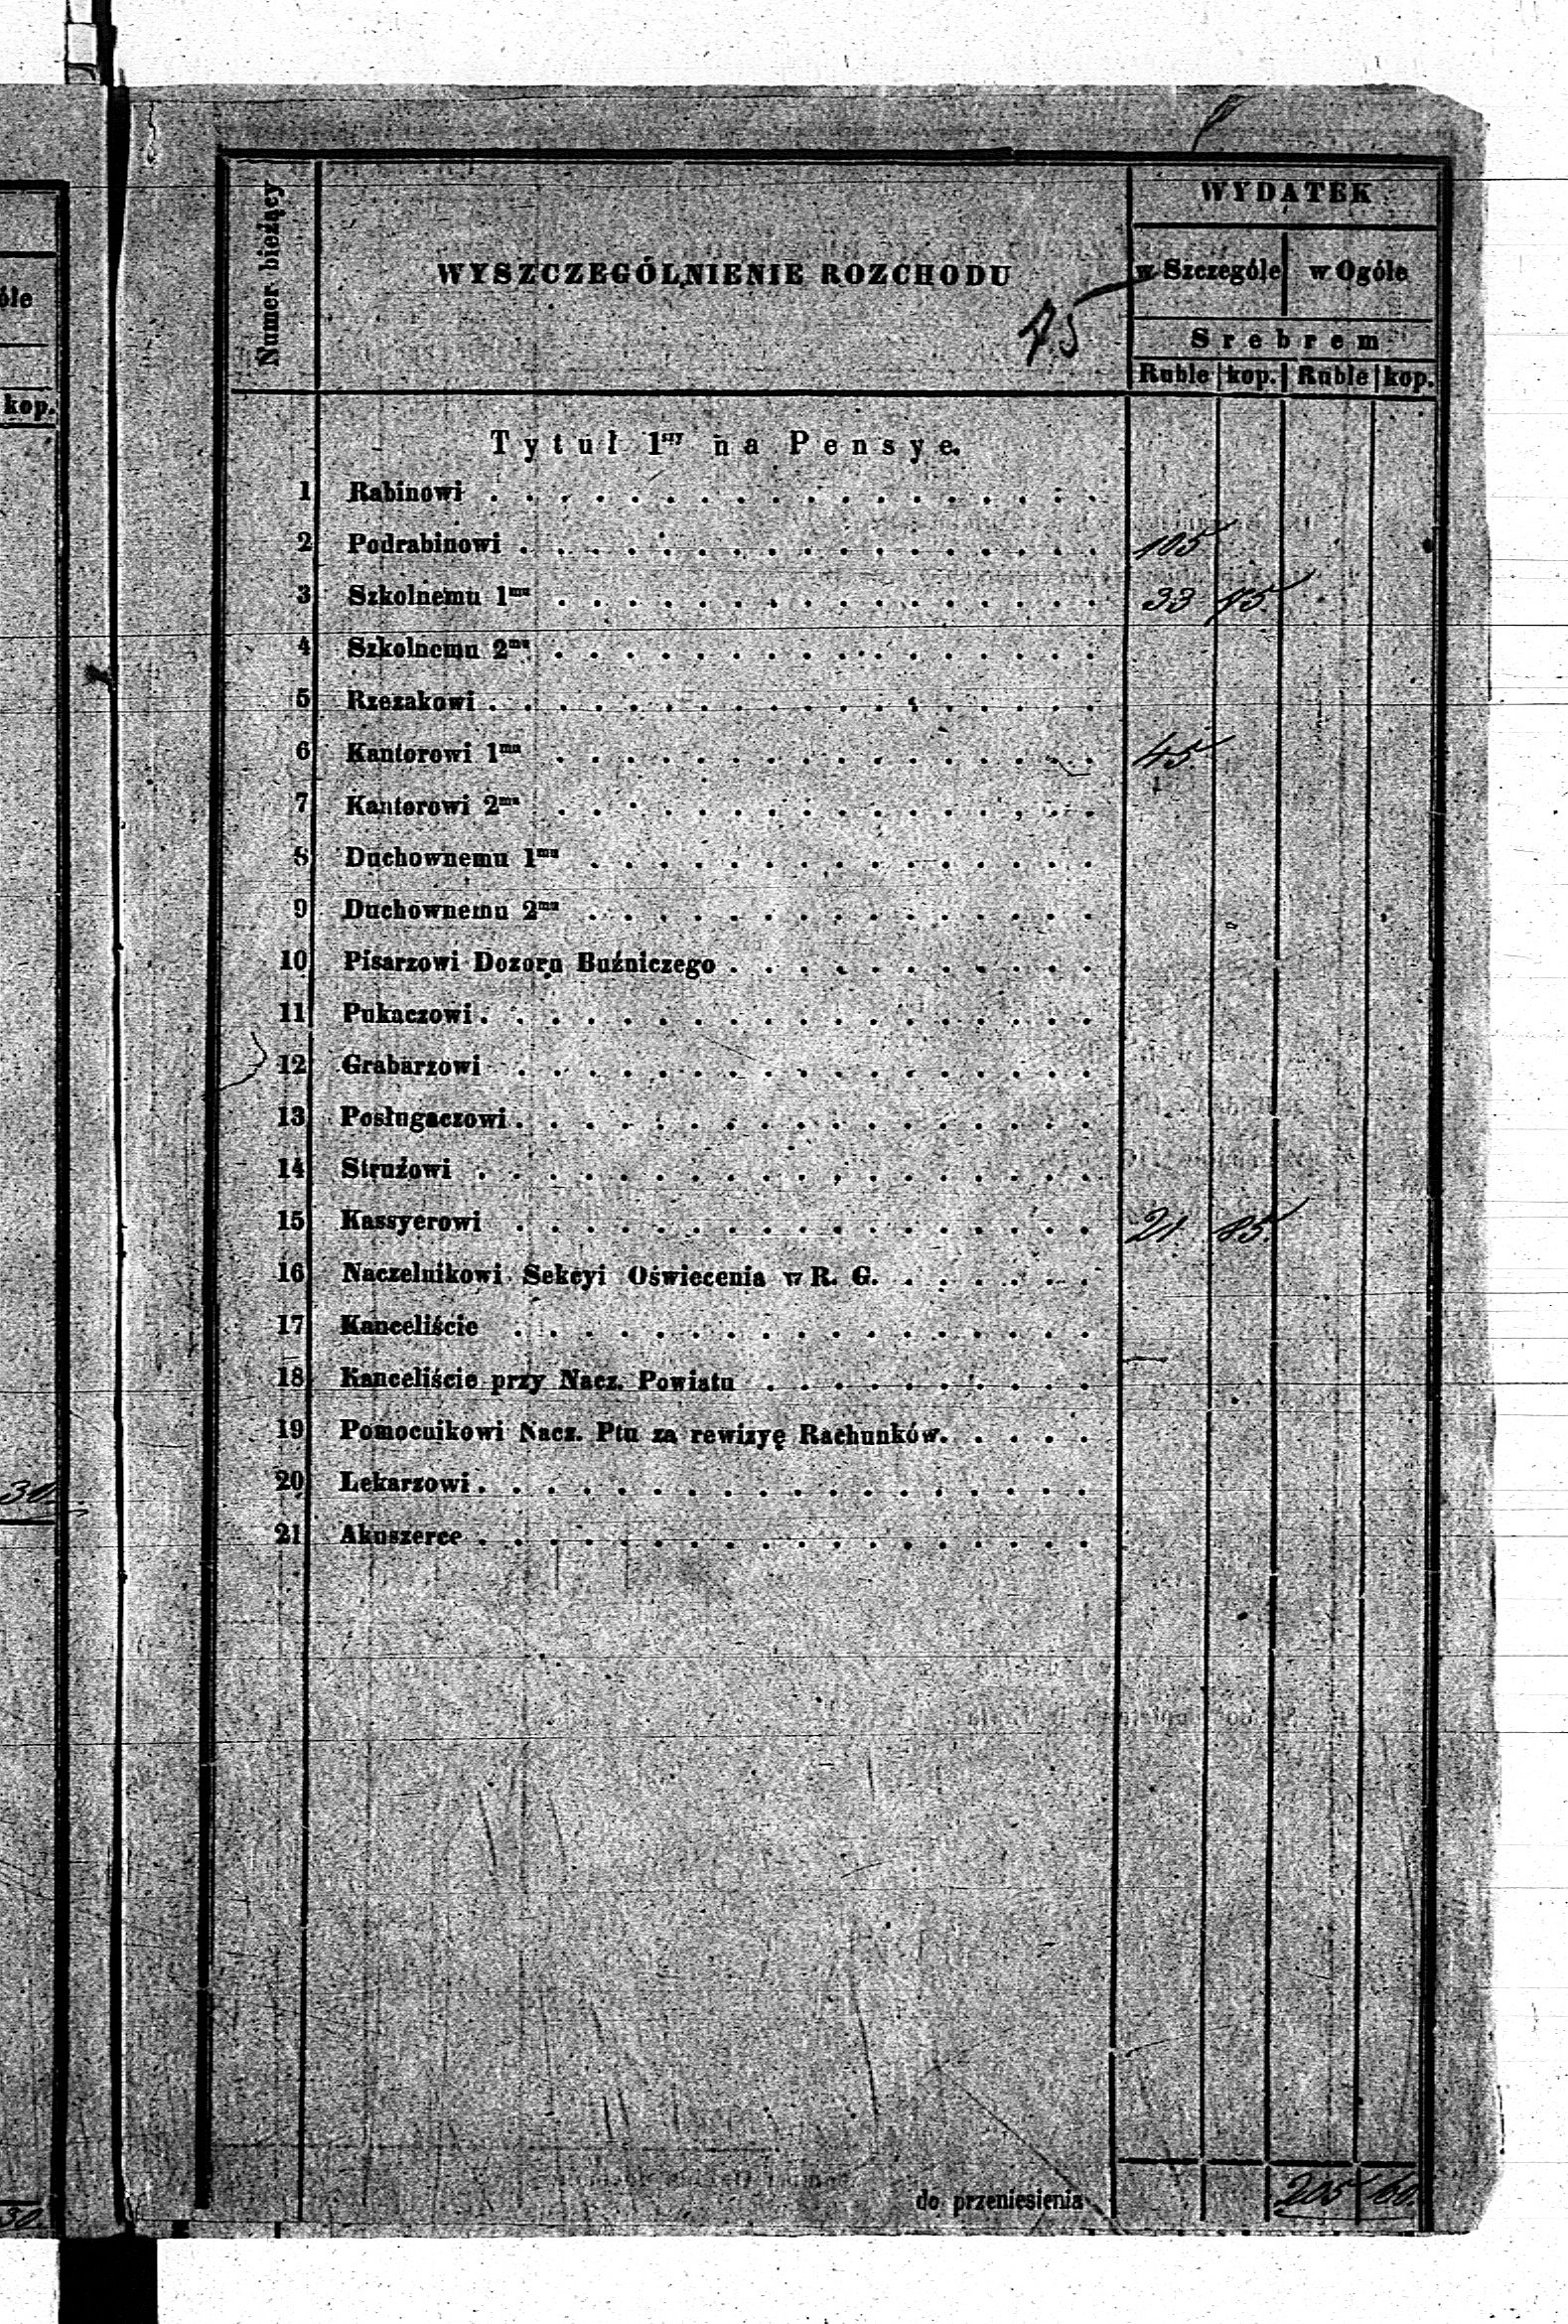 óle
kop.
30.
30.
Numer bieżący
WYSZCZEGÓLNIENIE ROZCHODU
WYDATEK
w Szczególe w Ogóle
Srebrem
Ruble kop. Ruble kop.
Tytuł 1szy na Pensye.
1 Rabinowi
2 Podrabinowi 105
3 Szkolnemu 1mu 33 75.
4 Szkolnemu 2mu
5 Rzezakowi
6 Kantorowi 1mu 45.
7 Kantorowi 2mu
8 Duchownemu 1mu
9 Duchownemu 2mu
10 Pisarzowi Dozoru Buźniczego
11 Pukaczowi
12 Grabarzowi
13 Posługaczowi
14 Strużowi
15 Kassyerowi 21. 85.
16 Naczelnikowi Sekcyi Oświecenia w R. G.
17 Kanceliście
18 Kanceliście przy Nacz. Powiatu
19 Pomocnikowi Nacz. Ptu za rewizyę Rachunków
20 Lekarzowi
21 Akuszerce
do przeniesienia 205 60.